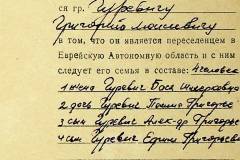 ся гр. Гуревичу
Григорию
в том, что он является переселенцем в
Еврейскую Автономную область и с ним
следует его семья в составе: 4 человек
1 жена Гуревич Бася
2 дочь Гуревич Григор
3 сын Гуревич Алек-др Григорье
4 сын Гуревич Ефим Григорьев